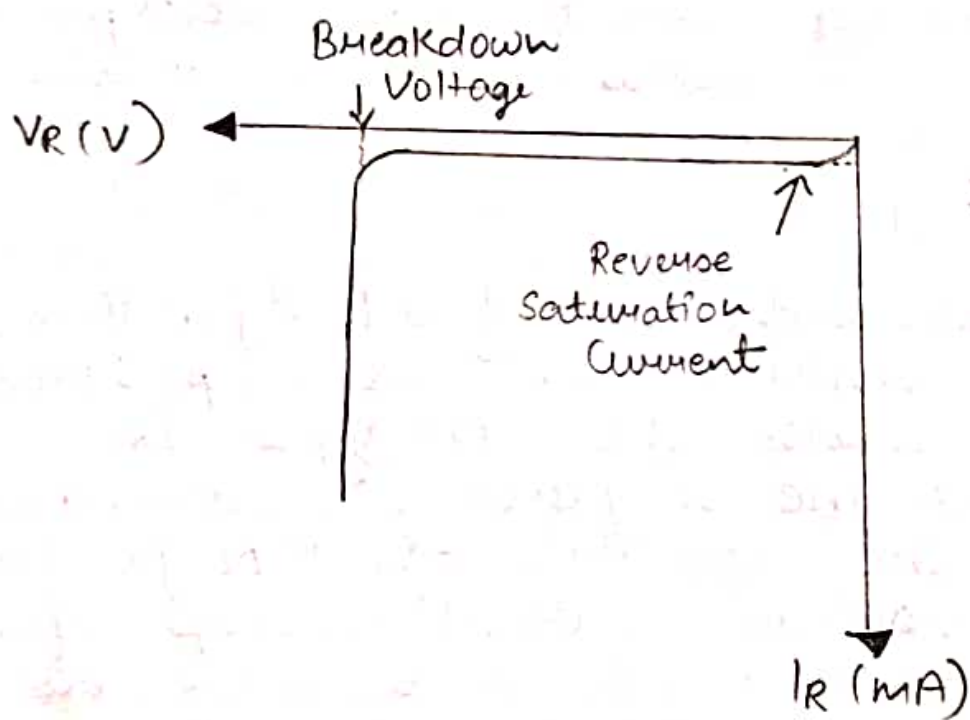 Breakdown
Voltage
VR (V)
Reverse
Saturation
Current
IR (mA)